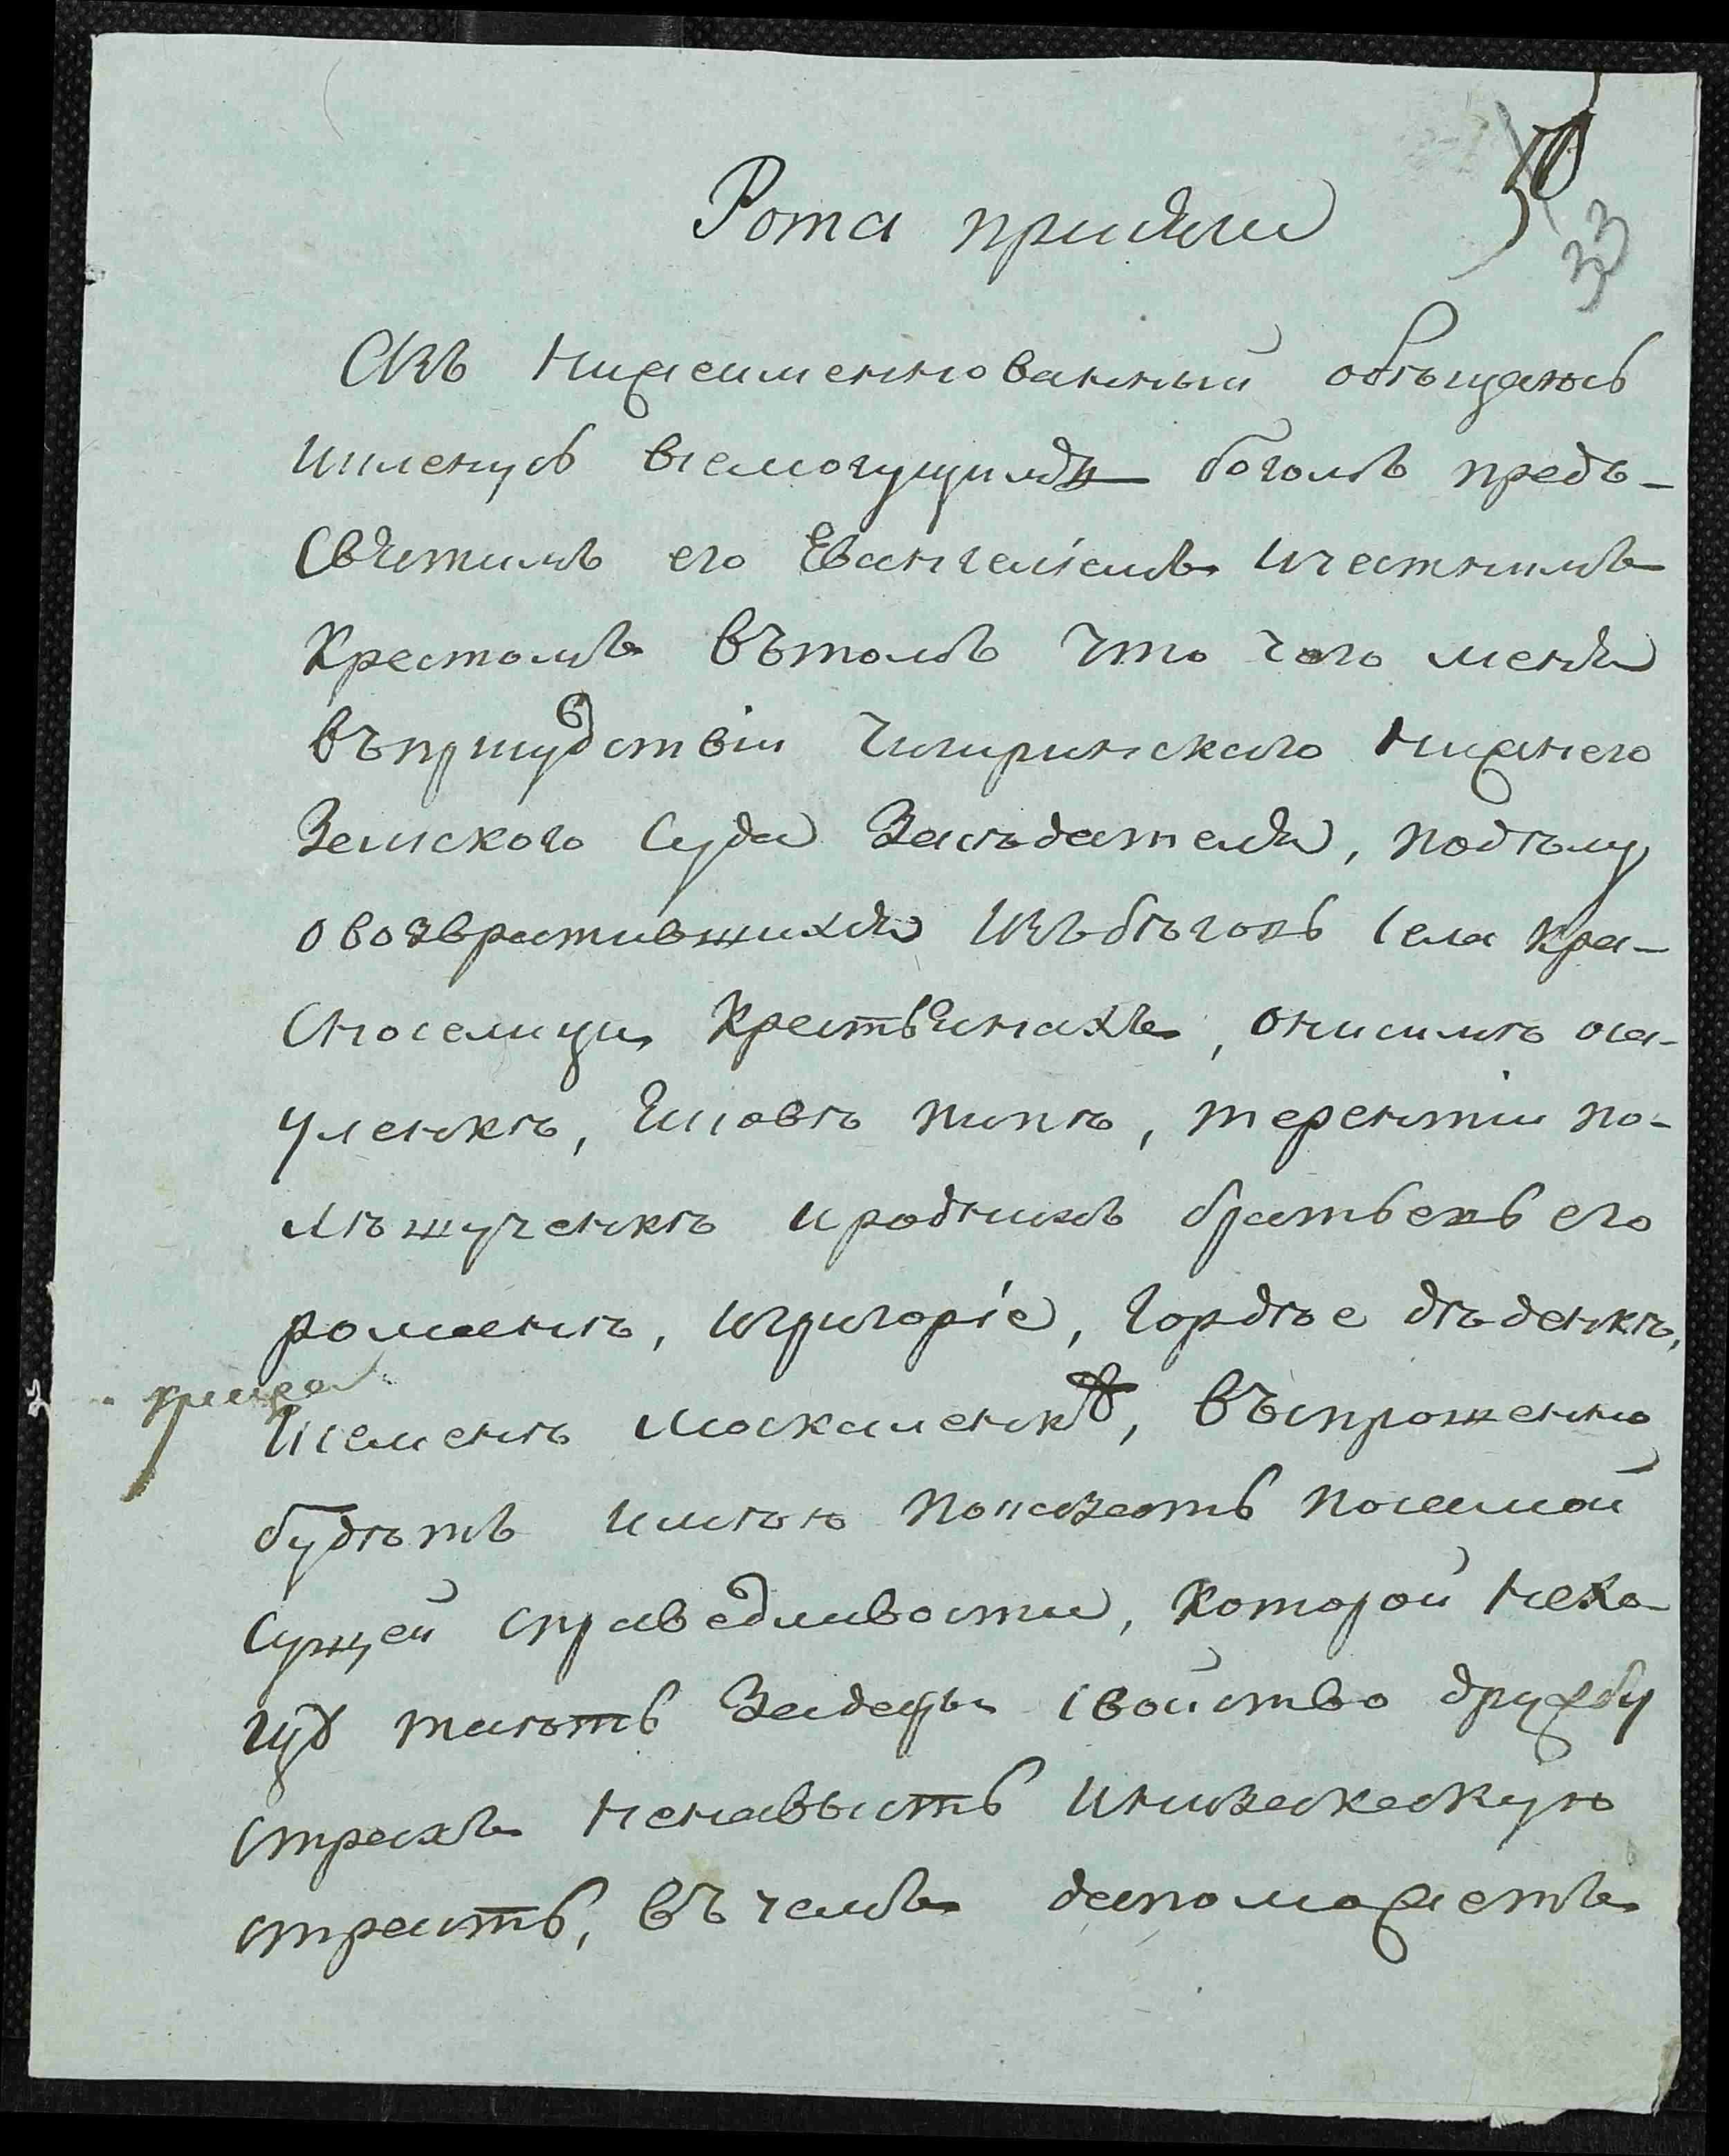 50
33
Рота присяги
Азъ нижеименнованный обѣщаюсь
иклянусь всемогущимъ богомъ предъ-
Святимъ его Евангелiемъ ичестнимъ
Крестомъ вътомъ что чого меня
въприсудствiи Чигиринского нижнего
Земского Суда Засѣдателя, подѣлу
овозвратившихся изъбѣговъ села Кра-
сноселици Крестьянахъ, онисимѣ оса-
уленкѣ, Яковѣ пипѣ, терентiи по-
лѣшученкѣ иродних братьевъ его
романѣ, игригорiе, гордѣе дѣденкѣ,
Семенѣ москаленкѣ, въпрошенно
будѣтъ имѣю показать посамой
сущей справедливости, которой нехо-
чу таить задары свойство дружбу
страхъ ненависть инизакаскую
страсть, въ чемъ дапоможетъ